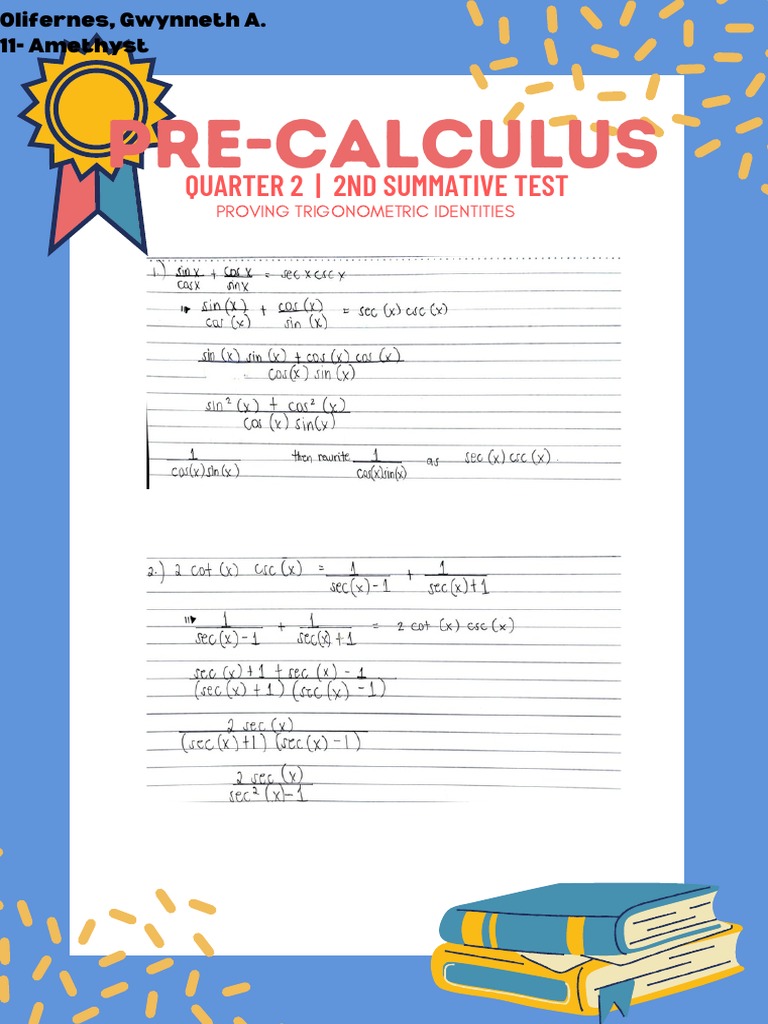 Olifernes, Gwynneth A.
11- Amethyst
PRE-CALCULUS
QUARTER 2 | 2ND SUMMATIVE TEST
PROVING TRIGONOMETRIC IDENTITIES
1.) sin x / cos x + cos x / sin x = sec x csc x
sin(x) / cos(x) + cos(x) / sin(x) = sec(x) csc(x)
sin(x) sin(x) + cos(x) cos(x) / cos(x) sin(x)
sin²(x) + cos²(x) / cos(x) sin(x)
1 / cos(x) sin(x) then rewrite 1 / cos(x) sin(x) as sec(x) csc(x).
2.) 2 cot(x) csc(x) = 1 / sec(x)-1 + 1 / sec(x)+1
1 / sec(x)-1 + 1 / sec(x)+1 = 2 cot(x) csc(x)
sec(x)+1 + sec(x)-1 / (sec(x)+1) (sec(x)-1)
2 sec(x) / (sec(x)+1) (sec(x)-1)
2 sec(x) / sec²(x)-1